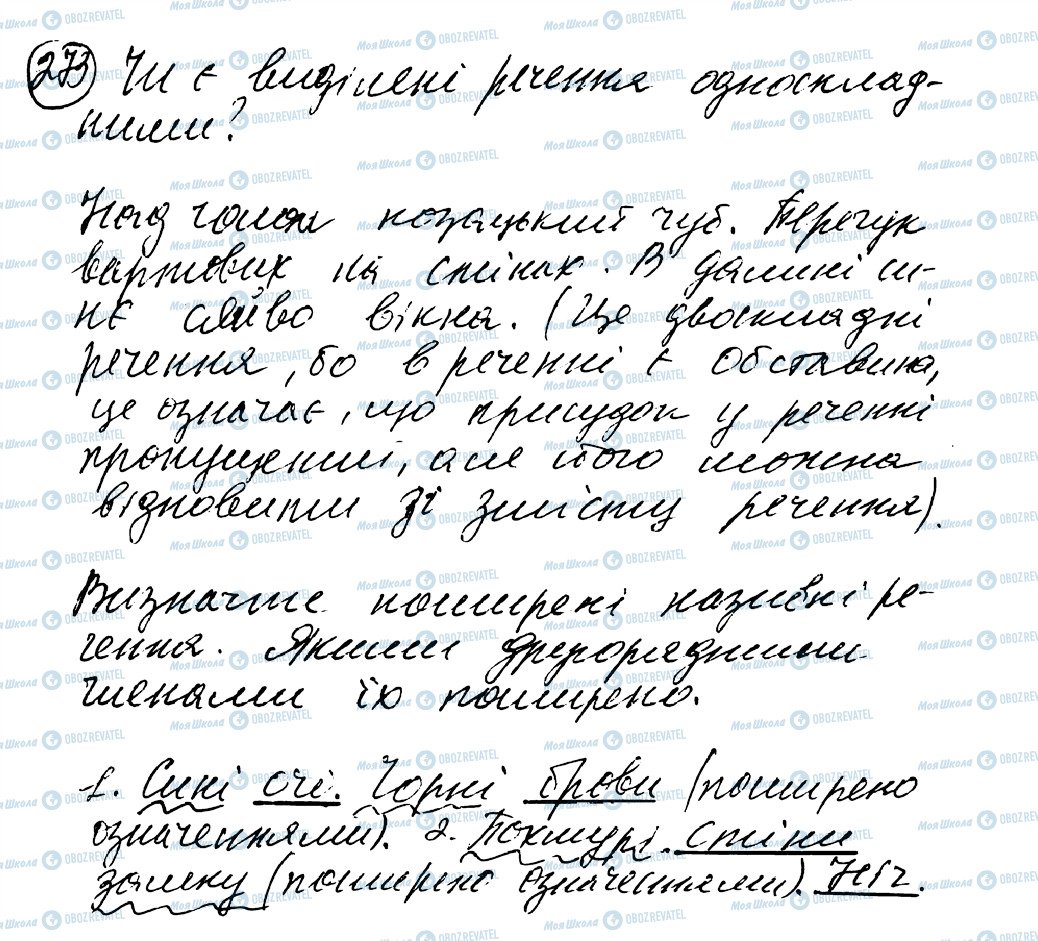 273 Чи є виділені речення односклад-
ними?
Над чолом козацький чуб. Перегук
вартових на стінах. В далині си-
нє сяйво вікна. (Це двоскладні
речення, бо в реченні є обставина,
це означає, що присудок у реченні
пропущений, але його можна
відновити зі змісту речення).
Визначте поширені називні ре-
чення. Якими другорядними
членами їх поширено.
1. Сині очі. Чорні брови (поширено
означеннями). 2. Похмурі стіни
замку (поширено означеннями). Ніч.